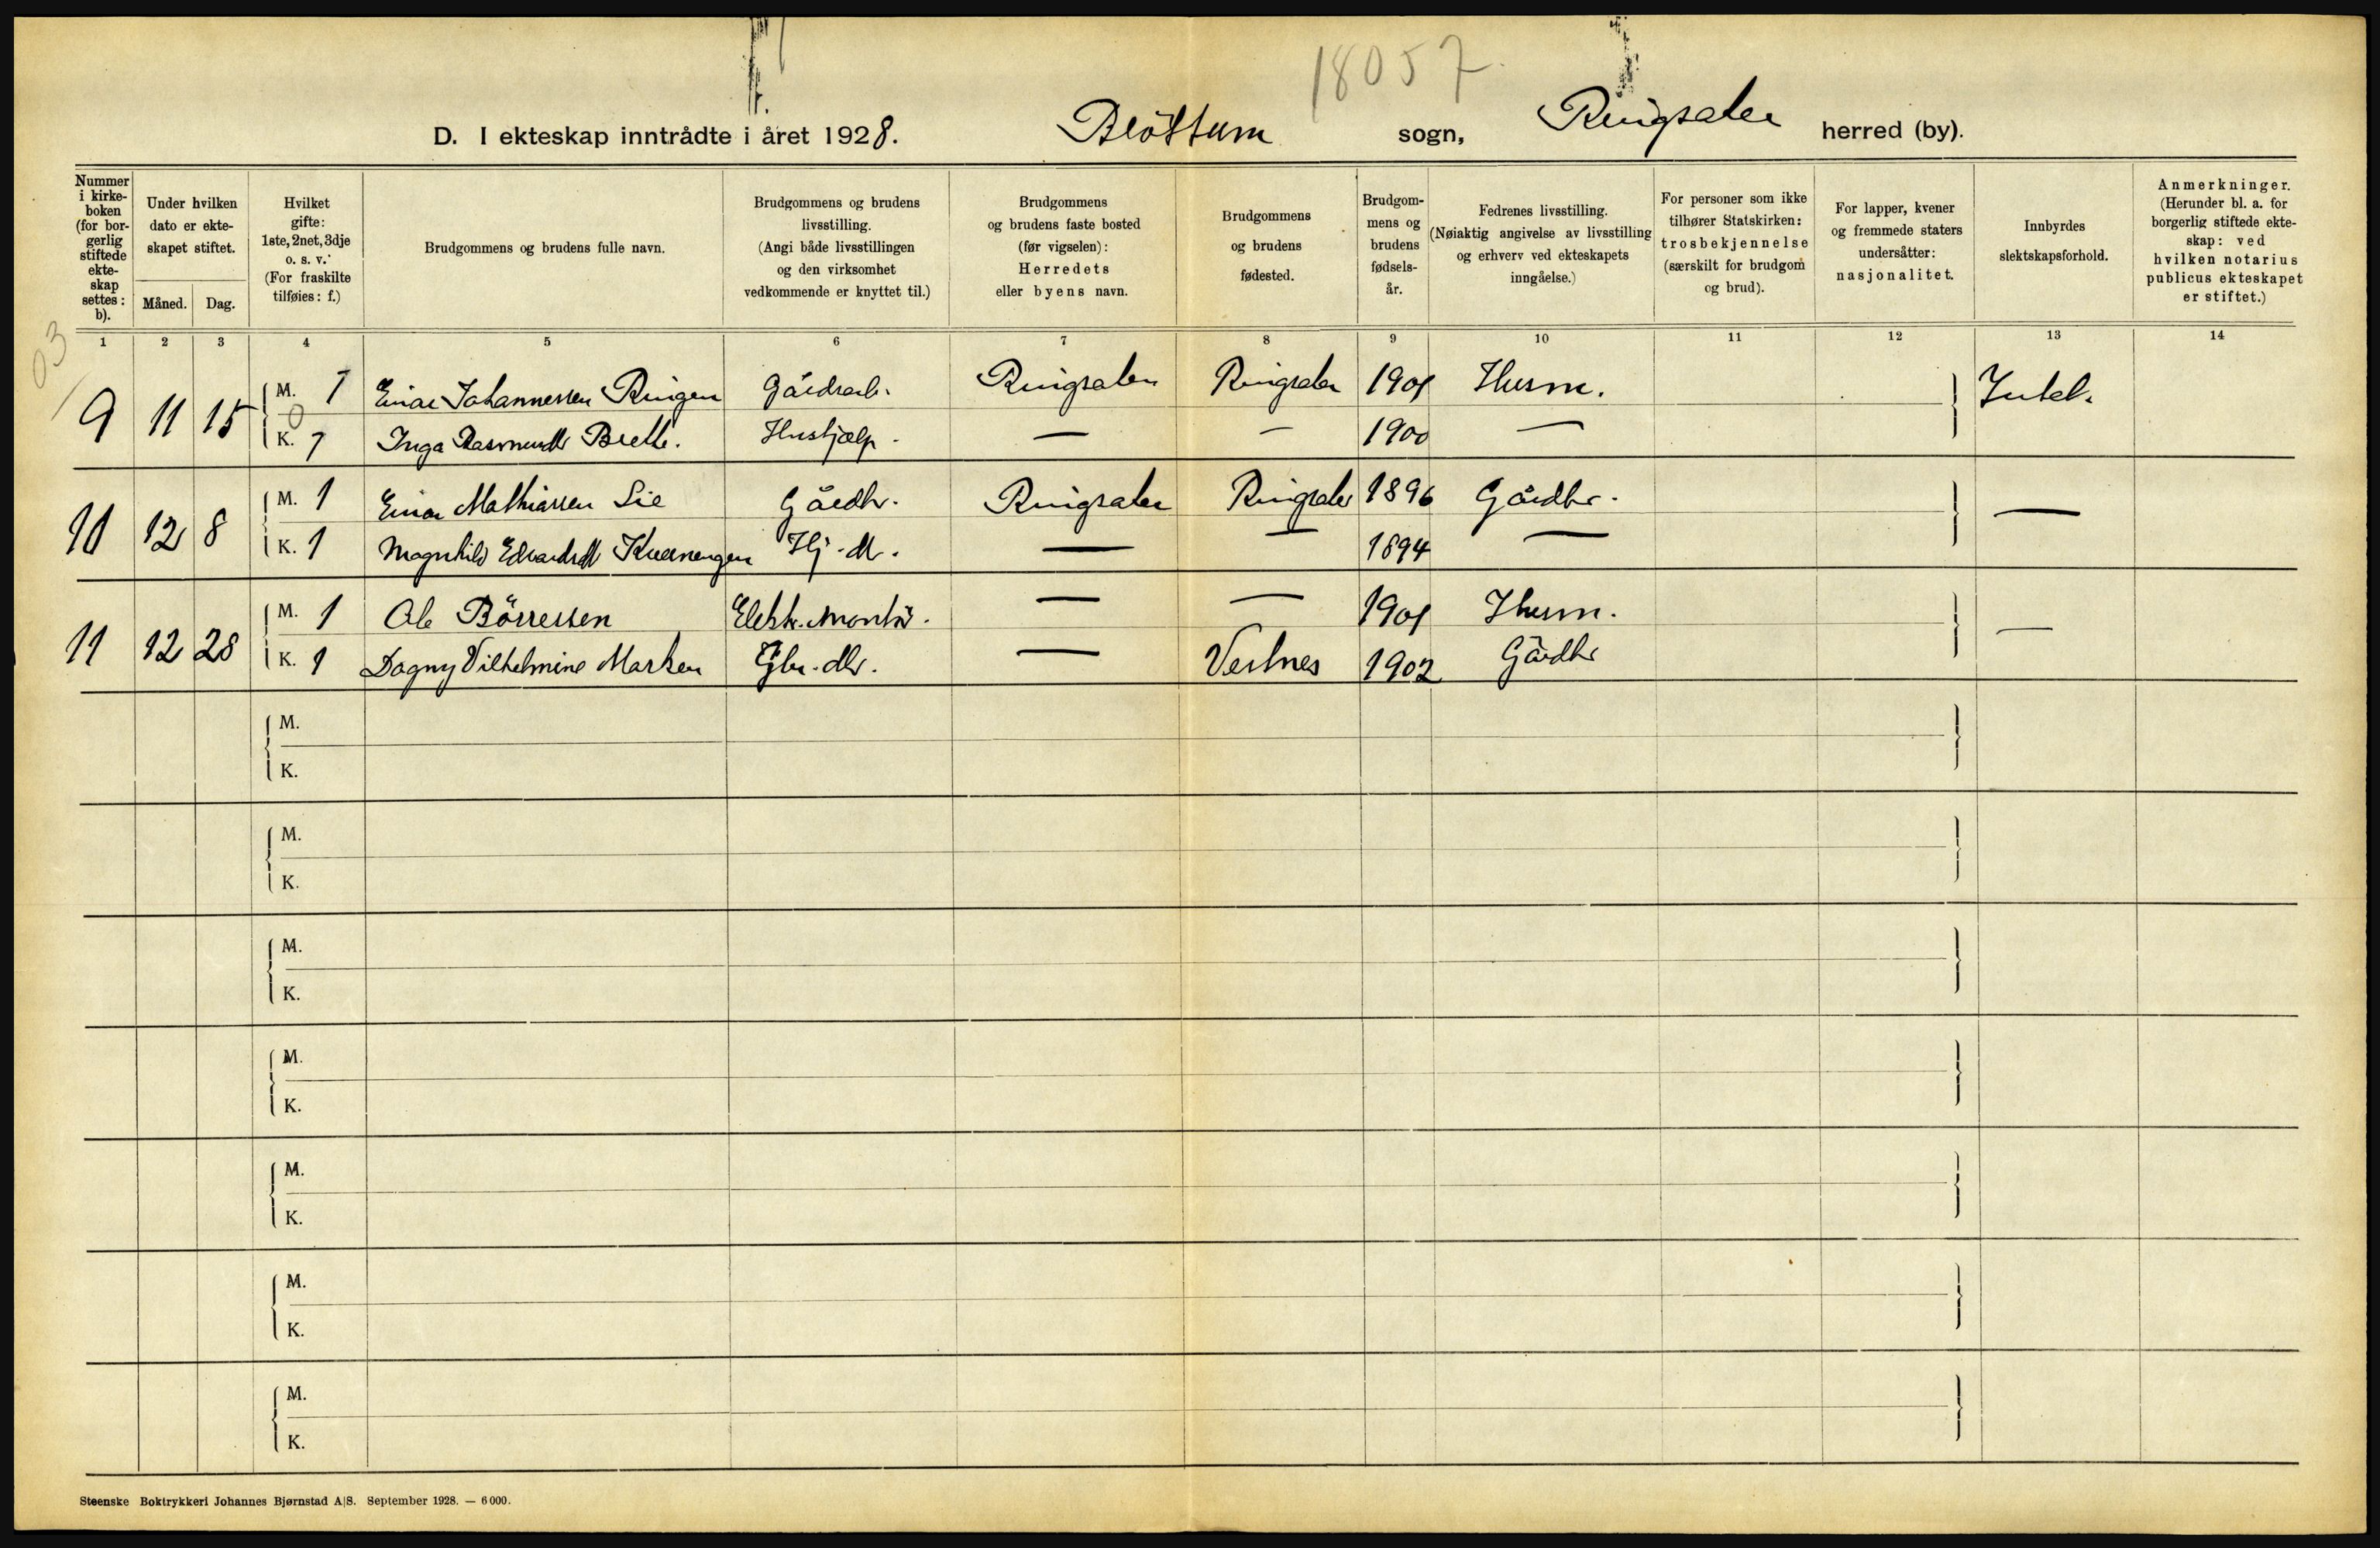 18057
D. I ekteskap inntrådte i året 1928. Brøttum sogn, Ringsaker herred (by).
Nummer i kirkeboken (for borgerlig stiftede ekteskap settes: b).
Under hvilken dato er ekteskapet stiftet.
Måned. Dag.
Hvilket gifte: 1ste, 2net, 3dje o. s. v. (For fraskilte tilføies: f.)
Brudgommens og brudens fulle navn.
Brudgommens og brudens livsstilling. (Angi både livsstillingen og den virksomhet vedkommende er knyttet til.)
Brudgommens og brudens faste bosted (før vigselen): Herredets eller byens navn.
Brudgommens og brudens fødested.
Brudgommens og brudens fødselsår.
Fedrenes livsstilling. (Nøiaktig angivelse av livsstilling og erhverv ved ekteskapets inngåelse.)
For personer som ikke tilhører Statskirken: trosbekjennelse (særskilt for brudgom og brud).
For lapper, kvener og fremmede staters undersåtter: nasjonalitet.
Innbyrdes slektskapsforhold.
Anmerkninger. (Herunder bl. a. for borgerlig stiftede ekteskap: ved hvilken notarius publicus ekteskapet er stiftet.)
1 2 3 4 5 6 7 8 9 10 11 12 13 14
03
9 11 15 M. 1 Einar Johannessen Ringen Gårdsarb. Ringsaker Ringsaker 1901 Husm. Intet.
0
K. 1 Inga Rasmusdtr Brette. Hushjælp. — — 1900 —
10 12 8 M. 1 Einar Mathiassen Lie Gårdbr. Ringsaker Ringsaker 1896 Gårdbr. —
K. 1 Magnhild Edvardsdtr Kvernengen Hj. dtr. — — 1894 —
11 12 28 M. 1 Ole Børresen Elektr. montør. — — 1901 Husm. —
K. 1 Dagny Vilhelmine Marken Gbr. dtr. — Vestnes 1902 Gårdbr
M.
K.
M.
K.
M.
K.
M.
K.
M.
K.
M.
K.
M.
K.
Steenske Boktrykkeri Johannes Bjørnstad A|S. September 1928. — 6000.